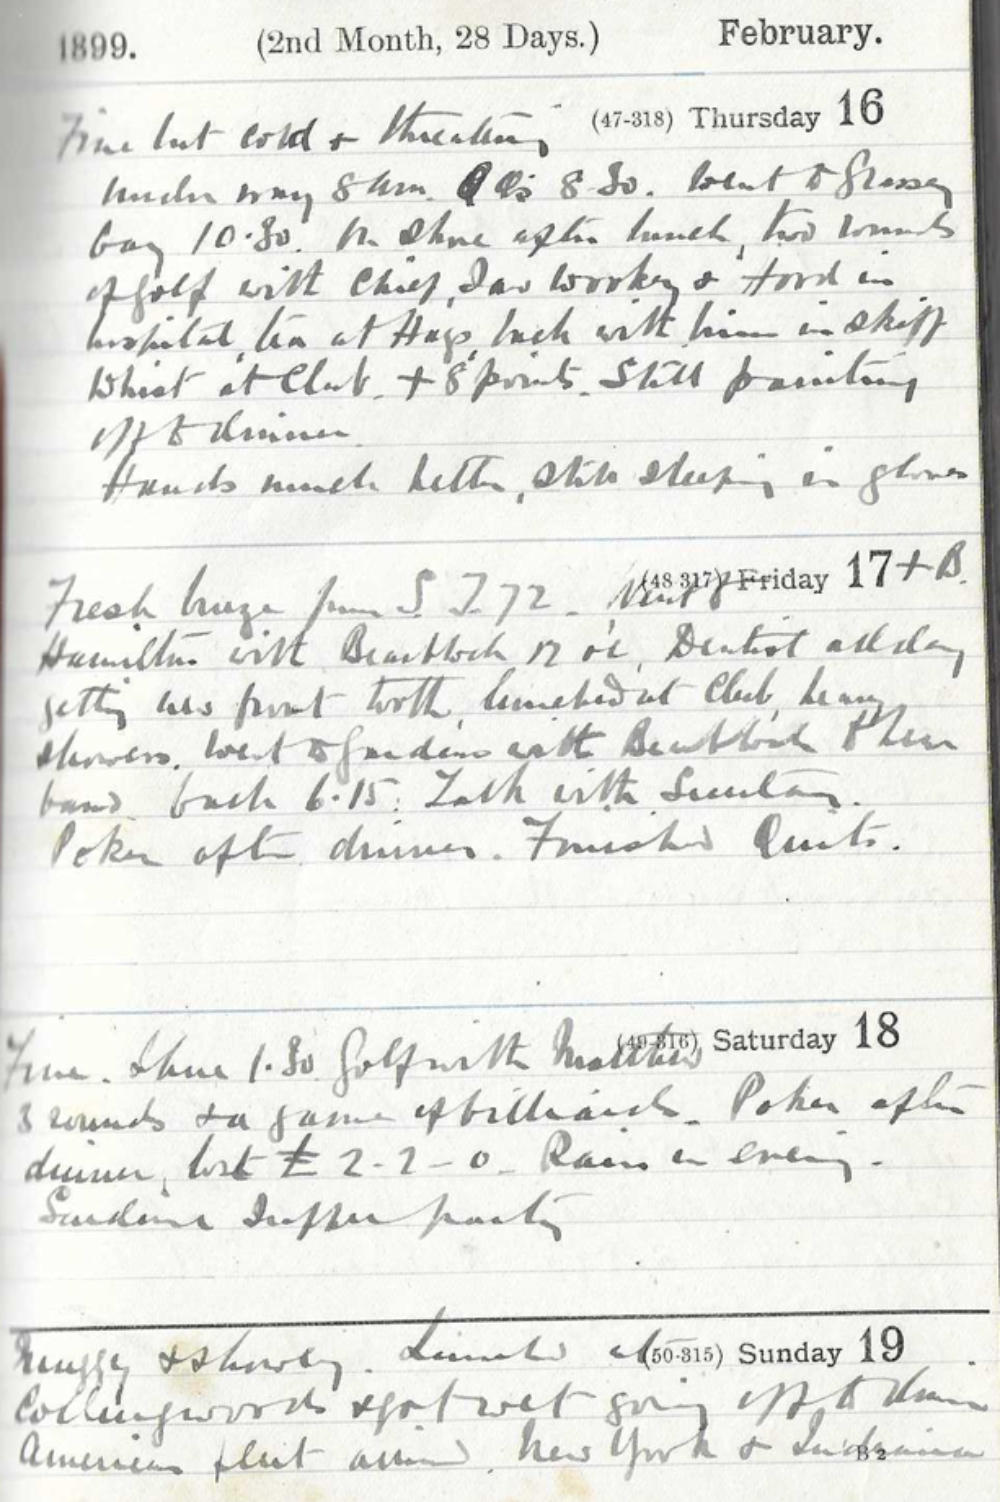 1899. (2nd Month, 28 Days.) February.
(47-318) Thursday 16
Fine but cold & threatening
under way 8 am. 8.30. Went to Grassy
bay 10.30. On shore after lunch, two rounds
of golf with Chief, Saw Wookey & Hord in
hospital, tea at Hags, back with him in skiff
Whist at Club. + 8 points. Still painting
off to dinner.
Hands much better, still sleeping in gloves
(48-317) Friday 17 + B.
Fresh breeze from S. T. 72. Went to
Hamilton with 12 oc, Dentist all day
getting new front tooth, lunched at Club, heavy
showers. Went to Gardens with & hear
band. back 6.15. Talk with
Poker after dinner. Finished Quits.
(49-316) Saturday 18
Fine. Shore 1.30 Golf with Matthew
3 rounds & a game of billiards. Poker after
dinner, lost £ 2-2-0. Rain in evening.
Sardine Supper party
(50-315) Sunday 19
Muggy & showery. Lunched at
Collingwoods & got wet going off to dinner
American fleet arrived. New York & Indiana
B 2